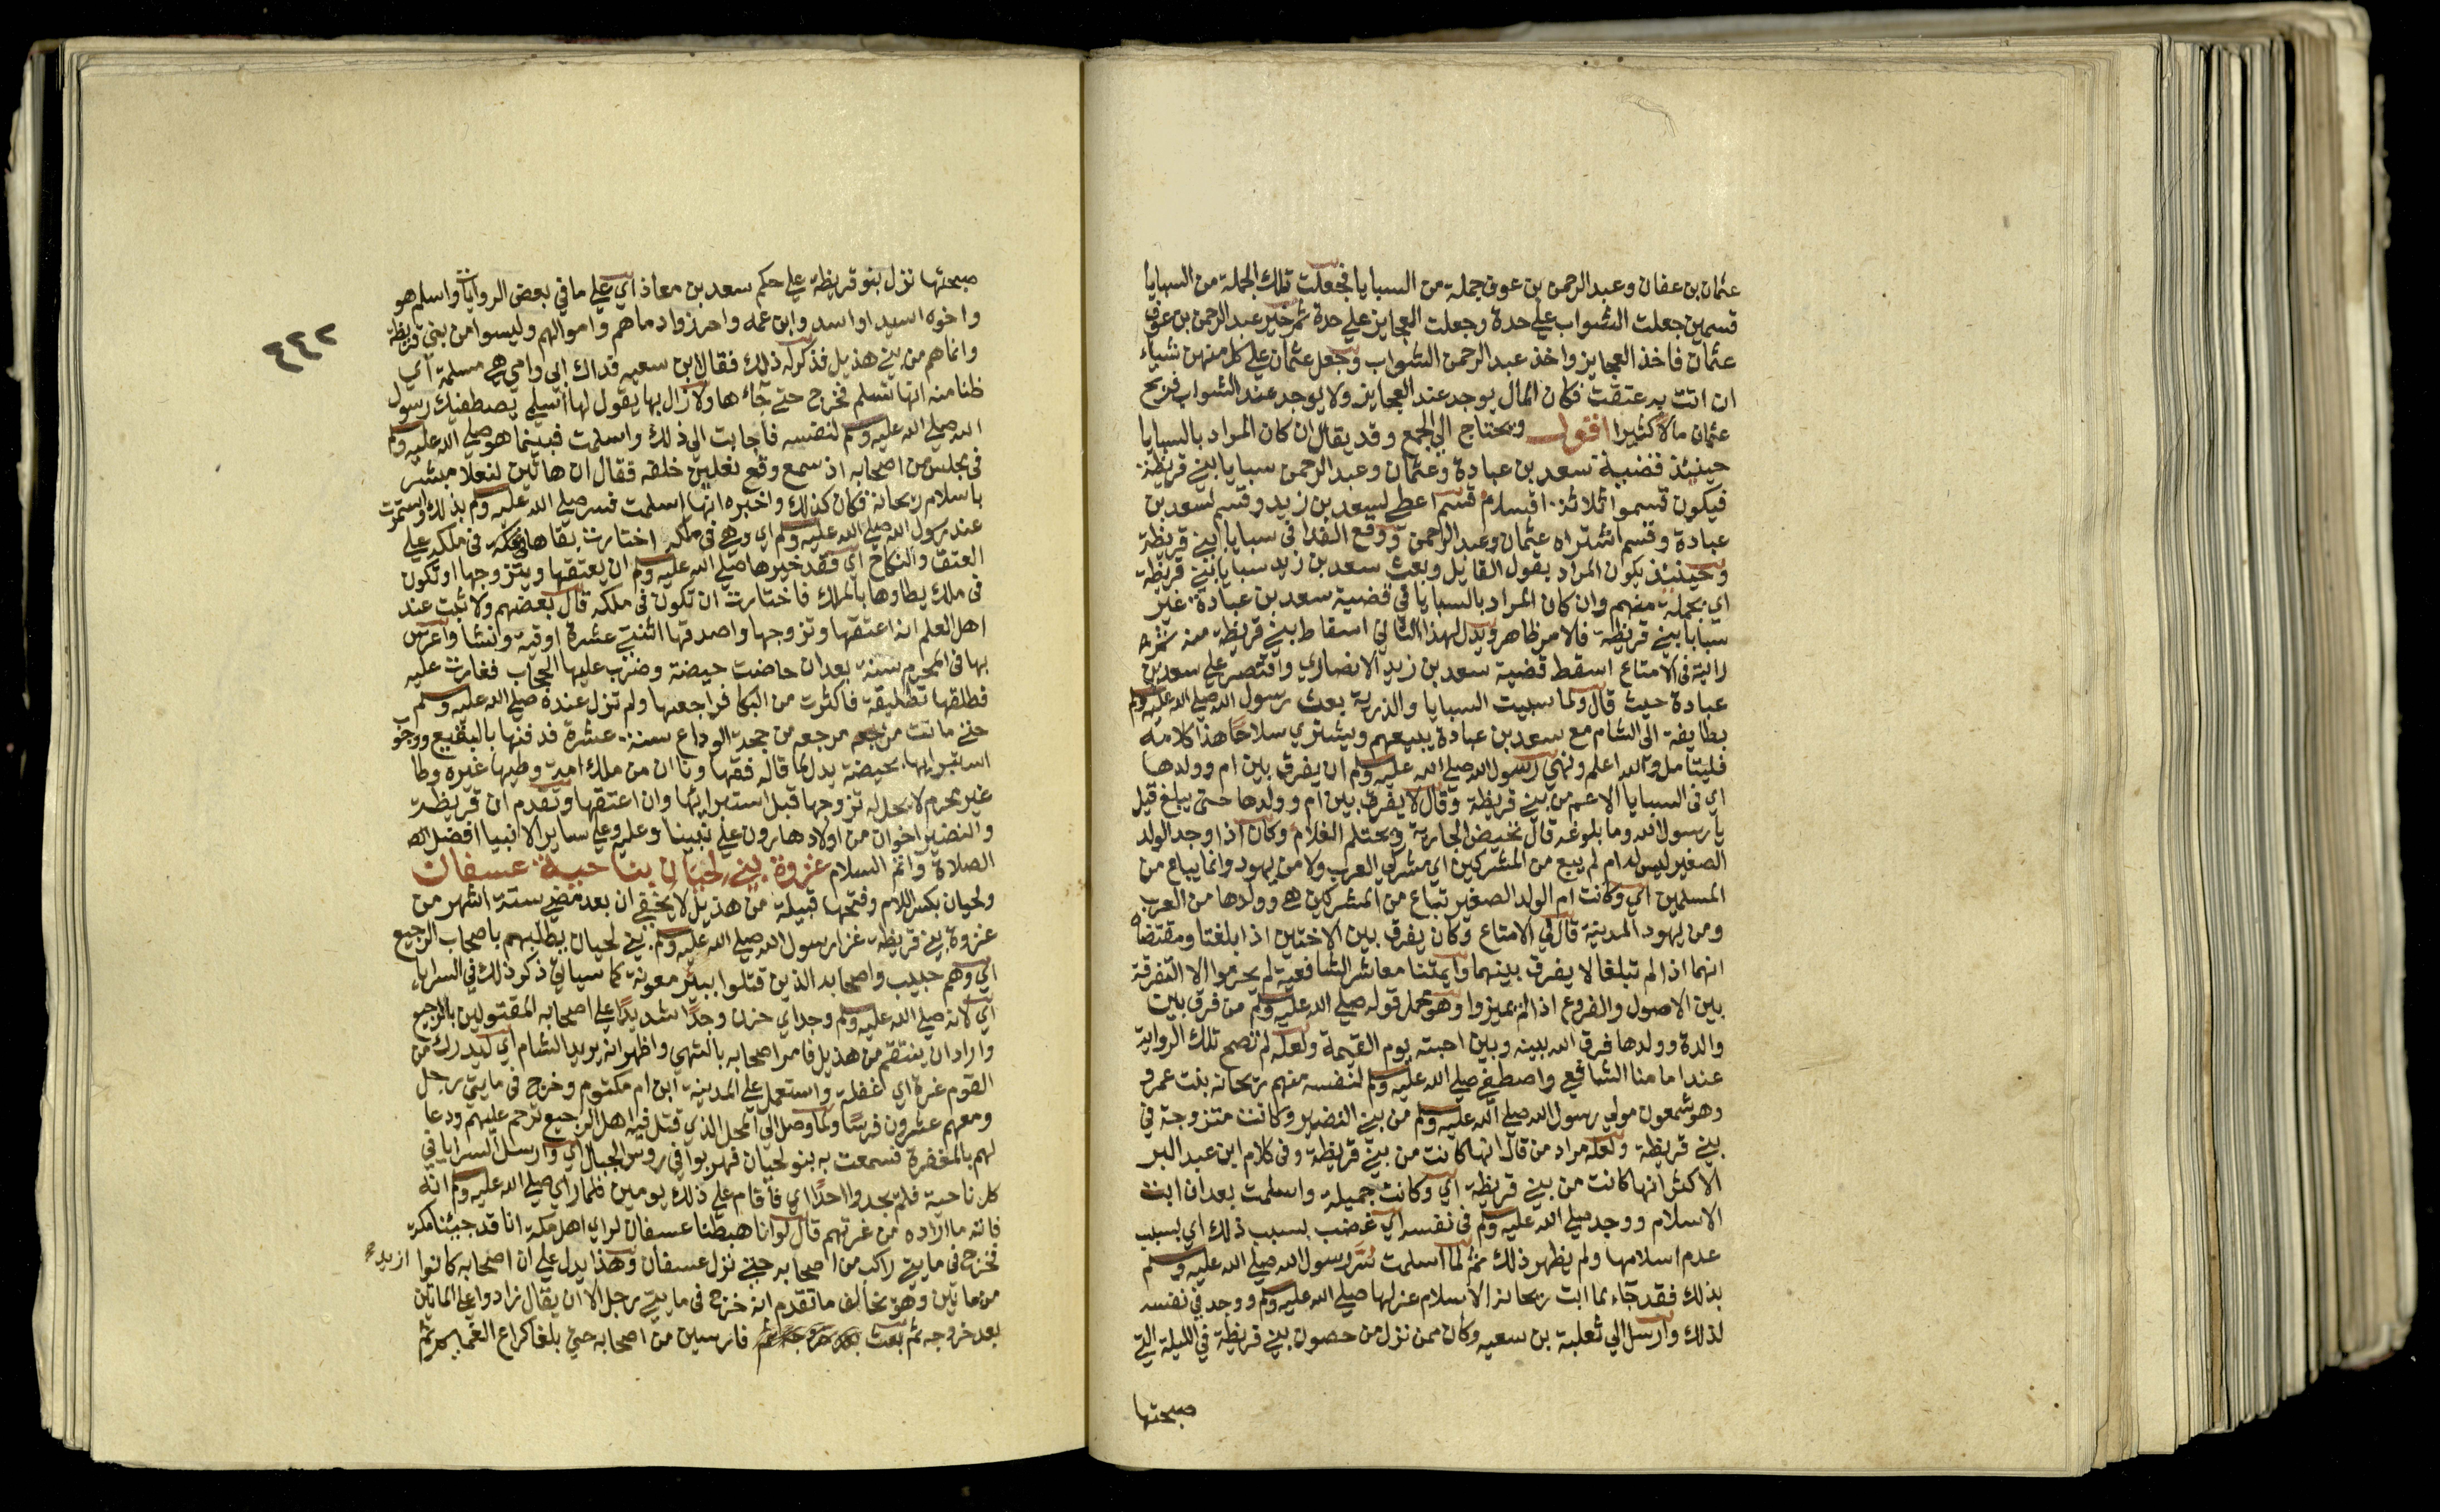 عثمان بن عفان وعبد الرحمن بن عوف جملة من السبايا فجعلت تلك الجملة من السبايا
قسمين جعلت الشواب علي حدة وجعلت العجايز علي حدة ثم خير عبد الرحمن بن عوف
عثمان فاخذ العجايز واخذ عبد الرحمن الشواب وجعل عثمان علي كل منهن شياء
ان اتت به عتقت فكان المال يوجد عند العجايز ولا يوجد عند الشواب فربح
عثمان مالا كثيرا اقول ويحتاج الي الجمع وقد يقال ان كان المراد بالسبايا
حينئذ قضية سعد بن عبادة وعثمان وعبد الرحمن سبايا بني قريظة
فيكون قسموا ثلاثة اقسام قسم اعطي لسعد بن زيد وقسم لسعد بن
عبادة وقسم اشتراه عثمان وعبد الرحمن ووقع الفدا في سبايا بني قريظة
وحينئذ يكون المراد بقول القايل وبعث سعد بن زيد سبايا بني قريظة
اي بجملة منهم وان كان المراد بالسبايا في قضية سعد بن عبادة غير
سبايا بني قريظة فالامر ظاهر ويدل لهذا الثاني اسقاط بني قريظة منه ثم
رايته في الامتاع اسقط قضية سعد بن زيد الانصاري واقتصر علي سعد بن
عبادة حيث قال ولما سبيت السبايا والذرية بعث رسول الله صلي الله عليه وسلم
بطايفة الي الشام مع سعد بن عبادة يبيعهم ويشتري سلاحا هذا كلامه
فليتامل والله اعلم ونهي رسول الله صلي الله عليه وسلم ان يفرق بين ام وولدها
اي في السبايا الاعم من بني قريظة وقال لا يفرق بين ام وولدها حتي يبلغ قيل
يا رسول الله وما بلوغه قال تحيض الجارية ويحتلم الغلام وكان اذا وجد الولد
الصغير ليس له ام لم يبع من المشركين اي مشركي العرب ولا من يهود وانما يباع من
المسلمين اي وكانت ام الولد الصغير تباع من المشركين هي وولدها من العرب
ومن يهود المدينة قال في الامتاع وكان يفرق بين الاختين اذا بلغتا ومقتضاه
انهما اذا لم تبلغا لا يفرق بينهما وايمتنا معاشر الشافعية لم يحرموا الا التفرقة
بين الاصول والفروع اذا لم يميزوا وهو محمل قوله صلي الله عليه وسلم من فرق بين
والدة وولدها فرق الله بينه وبين احبته يوم القيمة ولعله لم تصح تلك الرواية
عند امامنا الشافعي واصطفي صلي الله عليه وسلم لنفسه منهم ريحانة بنت عمرو
وهو شمعون مولي رسول الله صلي الله عليه وسلم من بني النضير وكانت متزوجة في
بني قريظة ولعله مراد من قال انها كانت من بني قريظة وفي كلام ابن عبد البر
الاكثر انها كانت من بني قريظة اي وكانت جميلة واسلمت بعد ان ابت
الاسلام ووجد صلي الله عليه وسلم في نفسه اي غضب بسبب ذلك اي بسبب
عدم اسلامها ولم يظهر ذلك ثم لما اسلمت سر رسول الله صلي الله عليه وسلم
بذلك فقد جاء لما ابت ريحانة الاسلام عزلها صلي الله عليه وسلم ووجد في نفسه
لذلك وارسل الي ثعلبة بن سعيه وكان ممن نزل من حصون بني قريظة في الليلة التي
صبحتها
صبحتها نزل بنو قريظة علي حكم سعد بن معاذ اي علي ما في بعض الروايات واسلم هو
واخوه اسيد او اسد وابن عمه واحرزوا دماهم واموالهم وليسوا من بني قريظة
وانما هم من بني هذيل فذكر له ذلك فقال ابن سعيه فداك ابي وامي هي مسلمة اي
ظنا منه انها تسلم فخرج حتي جاءها ولا زال بها يقول لها اسلمي يصطفيك رسول
الله صلي الله عليه وسلم لنفسه فاجابت الي ذلك واسلمت فبينما هو صلي الله عليه وسلم
في مجلس من اصحابه اذ سمع وقع نعلين خلفه فقال ان هاتين لنعلا مبشر
باسلام ريحانة فكان كذلك واخبره انها اسلمت فسر صلي الله عليه وسلم بذلك واستمرت
عند رسول الله صلي الله عليه وسلم اي وهي في ملكه اختارت بقاها في ملكه علي
العتق والنكاح اي فقد خيرها صلي الله عليه وسلم ان يعتقها ويتزوجها او تكون
في ملك يطاوها بالملك فاختارت ان تكون في ملكه قال بعضهم ولا ثبت عند
اهل العلم انه اعتقها وتزوجها واصدقها اثنتي عشرة اوقية ونشا واعرس
بها في المحرم سنة بعد ان حاضت حيضة وضرب عليها الحجاب فغارت عليه
فطلقها تطليقة فاكثرت من البكا فراجعها ولم تزل عنده صلي الله عليه وسلم
حتي ماتت مرجعه من حجة الوداع سنة عشرة فدفنها بالبقيع ووجوب
استبرايها بحيضة يدل لما قاله فقهاونا ان من ملك امة وطيها غيره وطا
غير محرم لا يحل له تزوجها قبل استبرايها وان اعتقها وتقدم ان قريظة
والنضير اخوان من اولاد هارون علي نبينا وعليه وعلي ساير الانبيا افضل
الصلاة واتم السلام غزوة بني لحيان بناحية عسفان
ولحيان بكسر اللام وفتحها قبيلة من هذيل لا يخفي ان بعد مضي ستة اشهر من
غزوة بني قريظة غزا رسول الله صلي الله عليه وسلم بني لحيان يطلبهم باصحاب الرجيع
اي وهم خبيب واصحابه الذين قتلوا ببير معونة كما سياتي ذكر ذلك في السرايا
اي لانه صلي الله عليه وسلم وجد اي حزن وجدا شديدا علي اصحابه المقتولين بالرجيع
واراد ان ينتقم من هذيل فامر اصحابه بالتهي واظهر انه يريد الشام اي ليدرك من
القوم غرة اي غفلة واستعمل علي المدينة ابن ام مكتوم وخرج في مايتي رجل
ومعهم عشرون فرسا ولما وصل الي المحل الذي قتل فيه اهل الرجيع ترحم عليهم ودعا
لهم بالمغفرة فسمعت به بنو لحيان فهربوا في روس الجبال اي وارسل السرايا في
كل ناحية فلم يجدوا احدا اي فاقام علي ذلك يومين فلما راي صلي الله عليه وسلم انه
فاته ما اراده من غرتهم قال لو انا هبطنا عسفان لراي اهل مكة انا قد جينا مكة
فخرج في مايتي راكب من اصحابه حتي نزل عسفان وهذا يدل علي ان اصحابه كانوا ازيد
من مايتين وهو يخالف ما تقدم انه خرج في مايتي رجل الا ان يقال زادوا علي المايتين
بعد خروجه ثم بعث فارسين من اصحابه حتي بلغا كراع الغميم ثم
٤٤٢